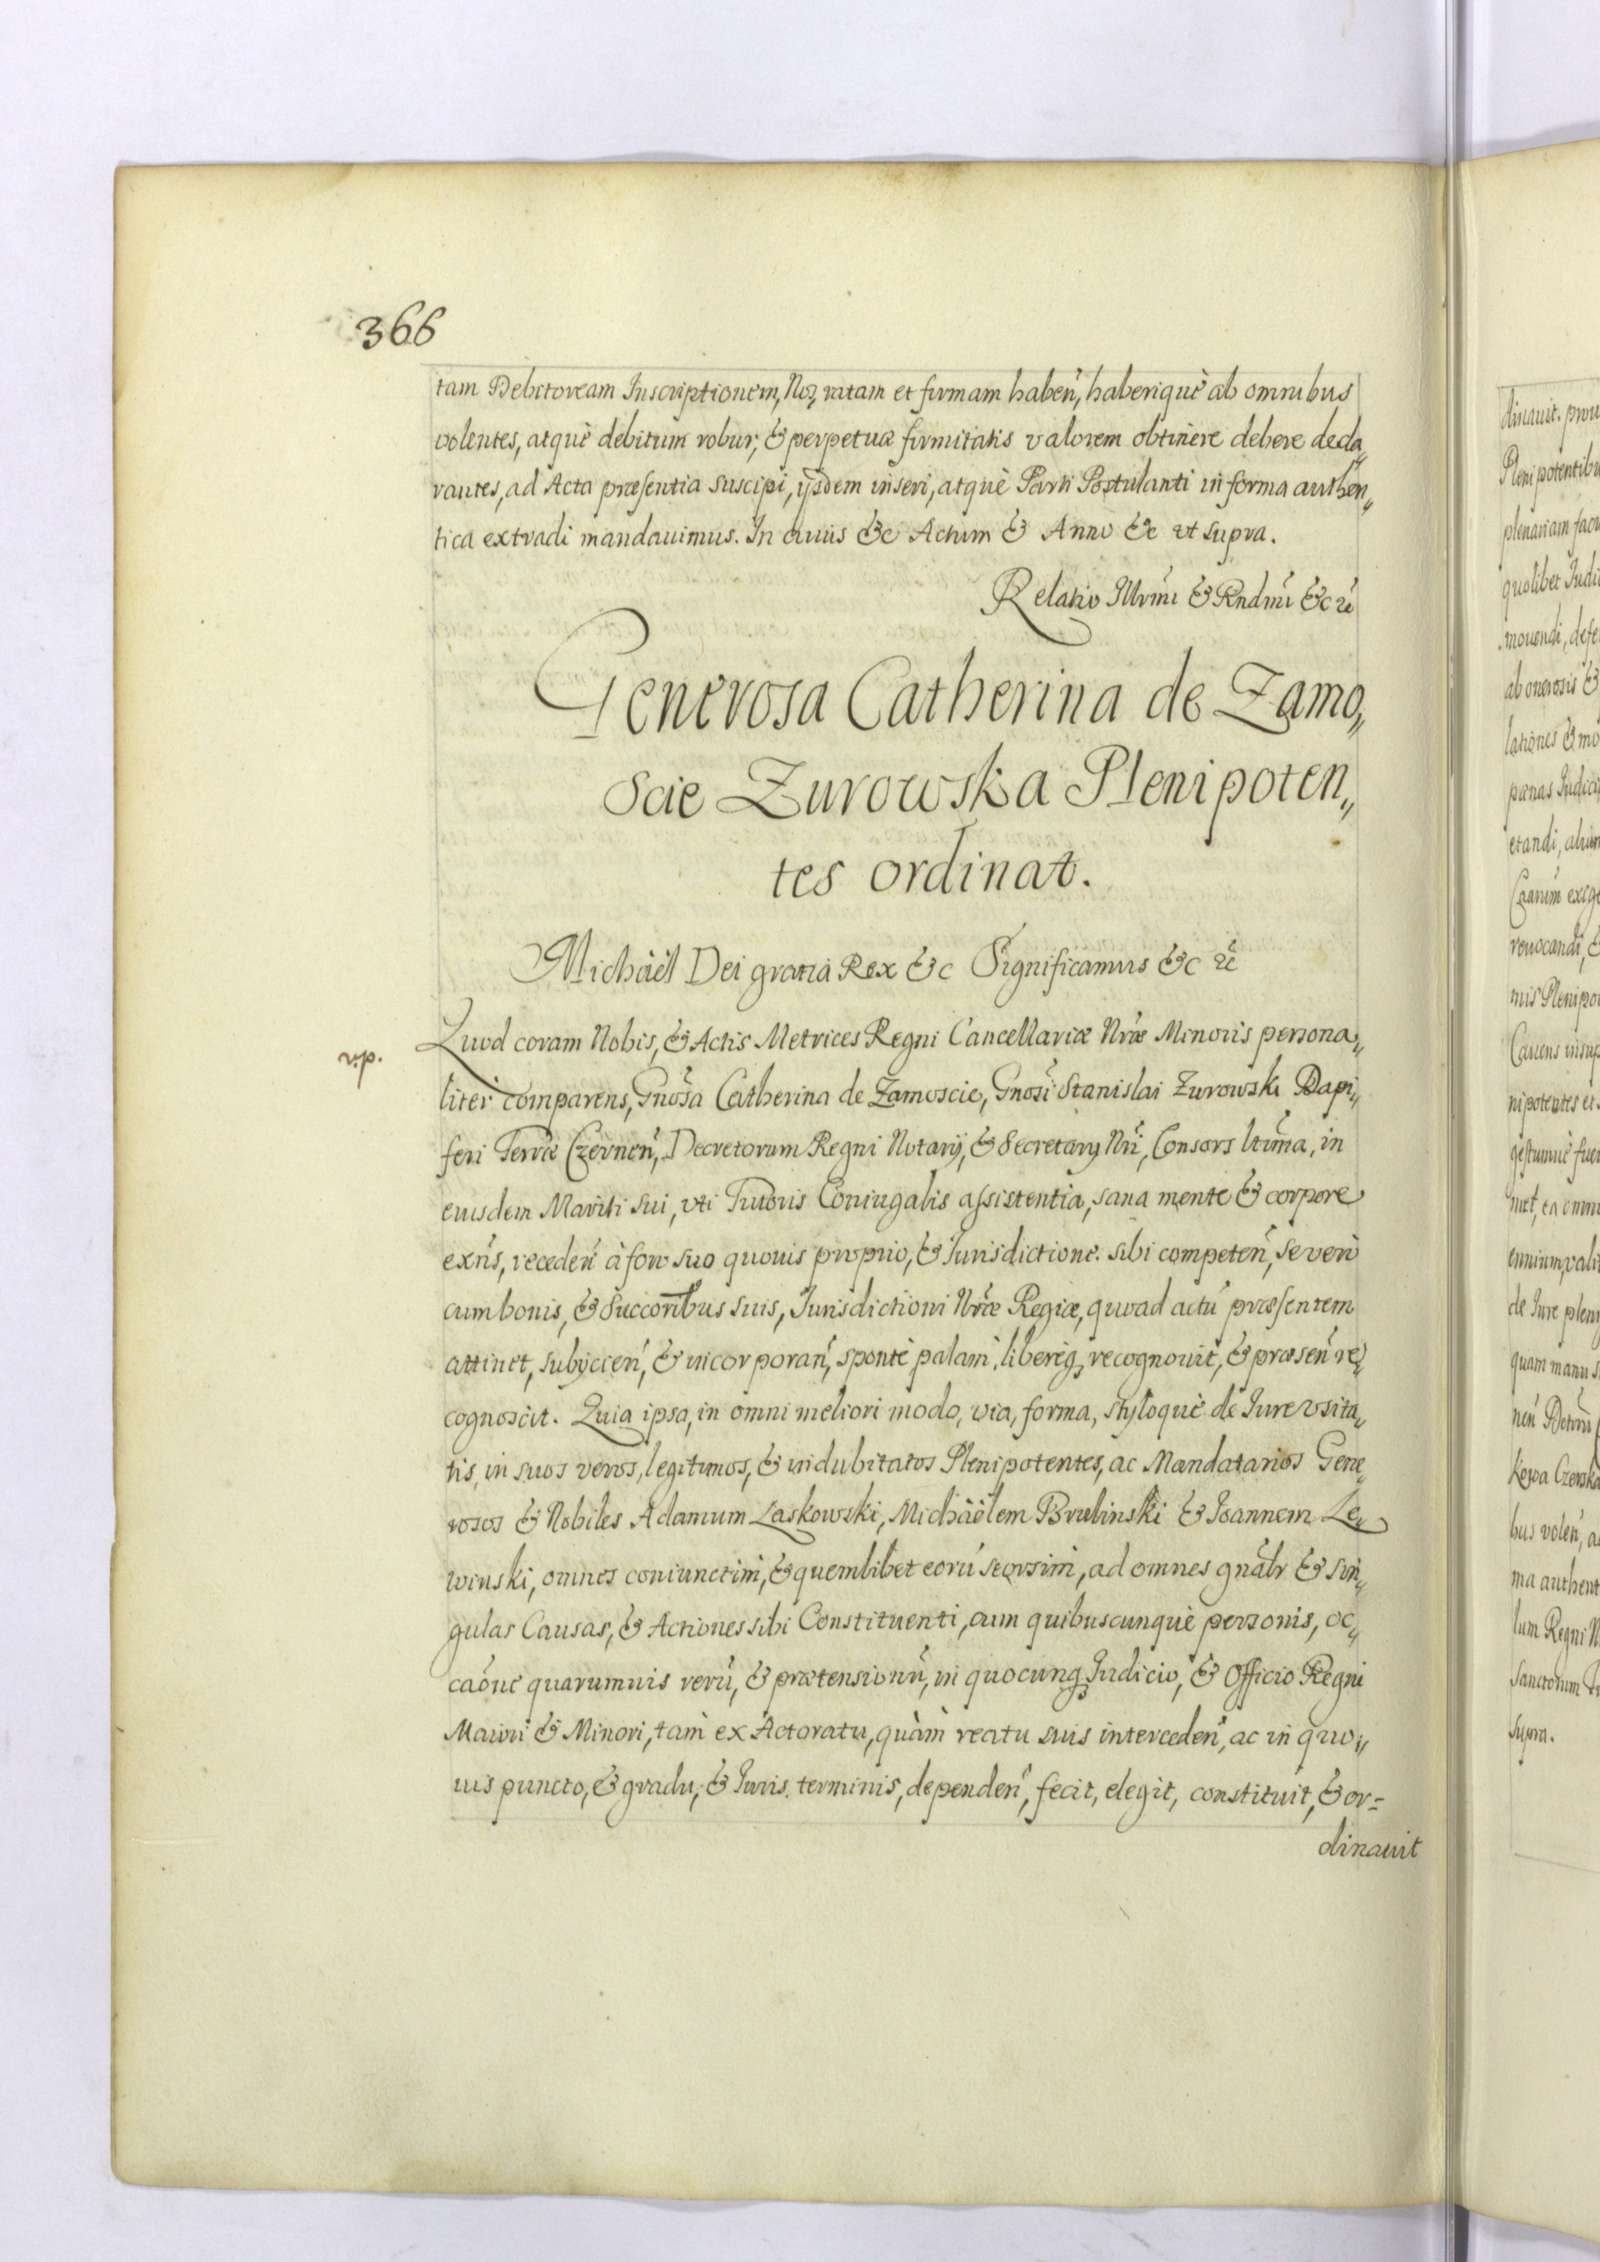 366
tam Debitoream Inscriptionem, Noz ratam et firmam habeñ, haberiquè ab omnibus
volentes, atquè debitum robur, & perpetuæ firmitatis valorem obtinere debere decla,,
rantes, ad Acta præsentia suscipi, ijsdem inseri, atquè Parti Postulanti in forma authen,,
tica extradi mandauimus. In cuius &c Actum & Anno &c vt supra.
Relatio Illrmi & Rndmi &c rc
Generosa Catherina de Zamo,,
scie Zurowska Plenipoten,,
tes ordinat.
Michäel Dei gratia Rex &c Significamus &c rc
v.p.
Quod coram Nobis, & Actis Metrices Regni Cancellariæ Nræ Minoris persona,,
liter comparens, Gnosa Catherina de Zamoscie, Gnosi Stanislai Zurowski Dapi,,
feri Terræ Czerneñ, Decretorum Regni Notarij, & Secretarij Nri, Consors ltima, in
eiusdem Mariti sui, vti Tutoris Coniugalis assistentia, sana mente & corpore
exns, recedeñ à foro suo quouis proprio, & Iurisdictione sibi competeñ, se verò
cum bonis, & Succoribus suis, Iurisdictioni Nræ Regiæ, quoad actũ præsentem
attinet, subijcieñ, & incorporañ, spontè palam, liberèq, recognouit, & præseñ re,,
cognoscit. Quia ipsa, in omni meliori modo, via, forma, styloquè de Iure vsita,,
tis, in suos veros, legitimos, & indubitatos Plenipotentes, ac Mandatarios Gene,,
rosos & Nobiles Adamum Laskowski, Michäelem Brubinski & Ioannem Le,,
winski, omnes coniunctim, & quemlibet eorũ seorsim, ad omnes gnalr & sin,,
gulas Causas, & Actiones sibi Constituenti, cum quibuscunquè personis, oc,,
caõne quarumuis rerũ, & prætensionũ, in quocunq Iudicio, & Officio Regni
Maiori & Minori, tam ex Actoratu, quàm reatu suis intercedeñ, ac in quo,,
uis puncto, & gradu, & Iuris terminis, dependeñ, fecit, elegit, constituit, & or=
dinauit
dinauit. prou
Plenipotentibu
plenariam facu
quolibet Iudi
mouendi, defe
ab onerosis &
lationes & mo
pœnas Iudici
etandi, alium
reuocandi, &
mis Plenipo
Cauens insup
nipotentes et
gestumuè fuer
de Iure pleni
quam manu s
bus voleñ, a
ma authent
lum Regni N
Sanctorum
supra.